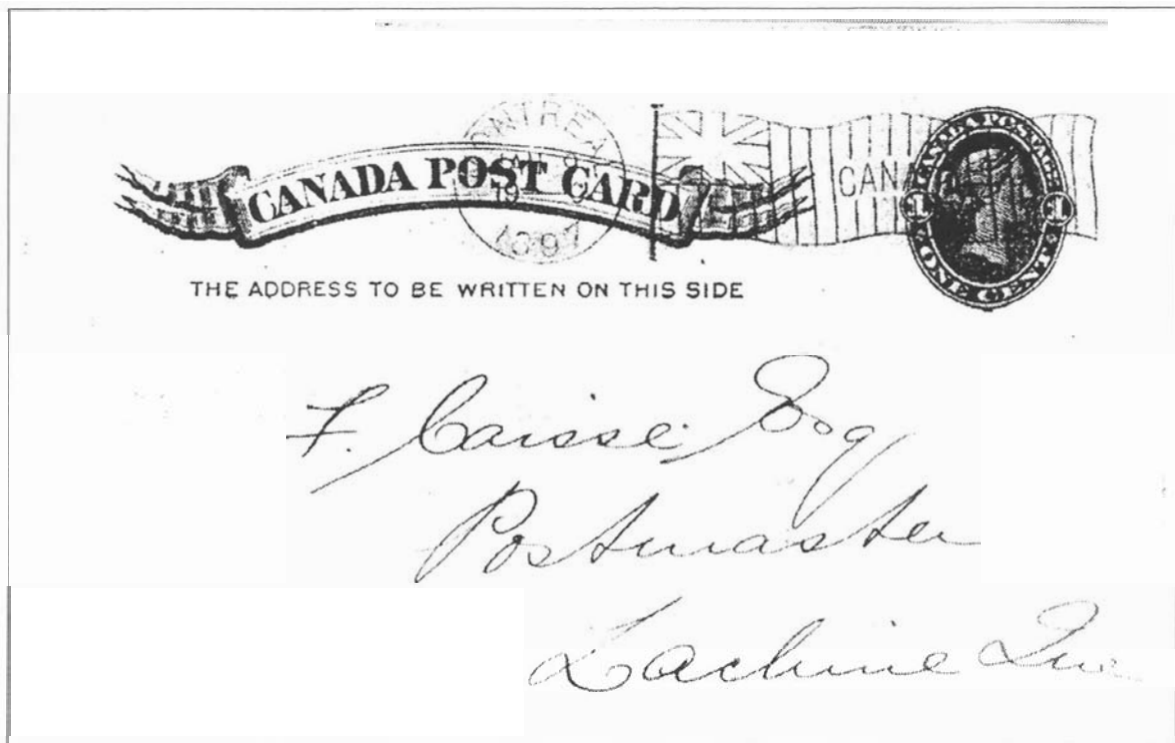 CANADA POST CARD
CANADA POSTAGE
1 1
ONE CENT
THE ADDRESS TO BE WRITTEN ON THIS SIDE
F. Caisse, Esq
Postmaster
Lachine Que